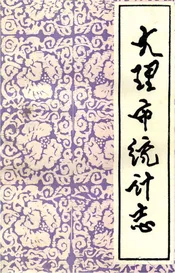 大理市统计志